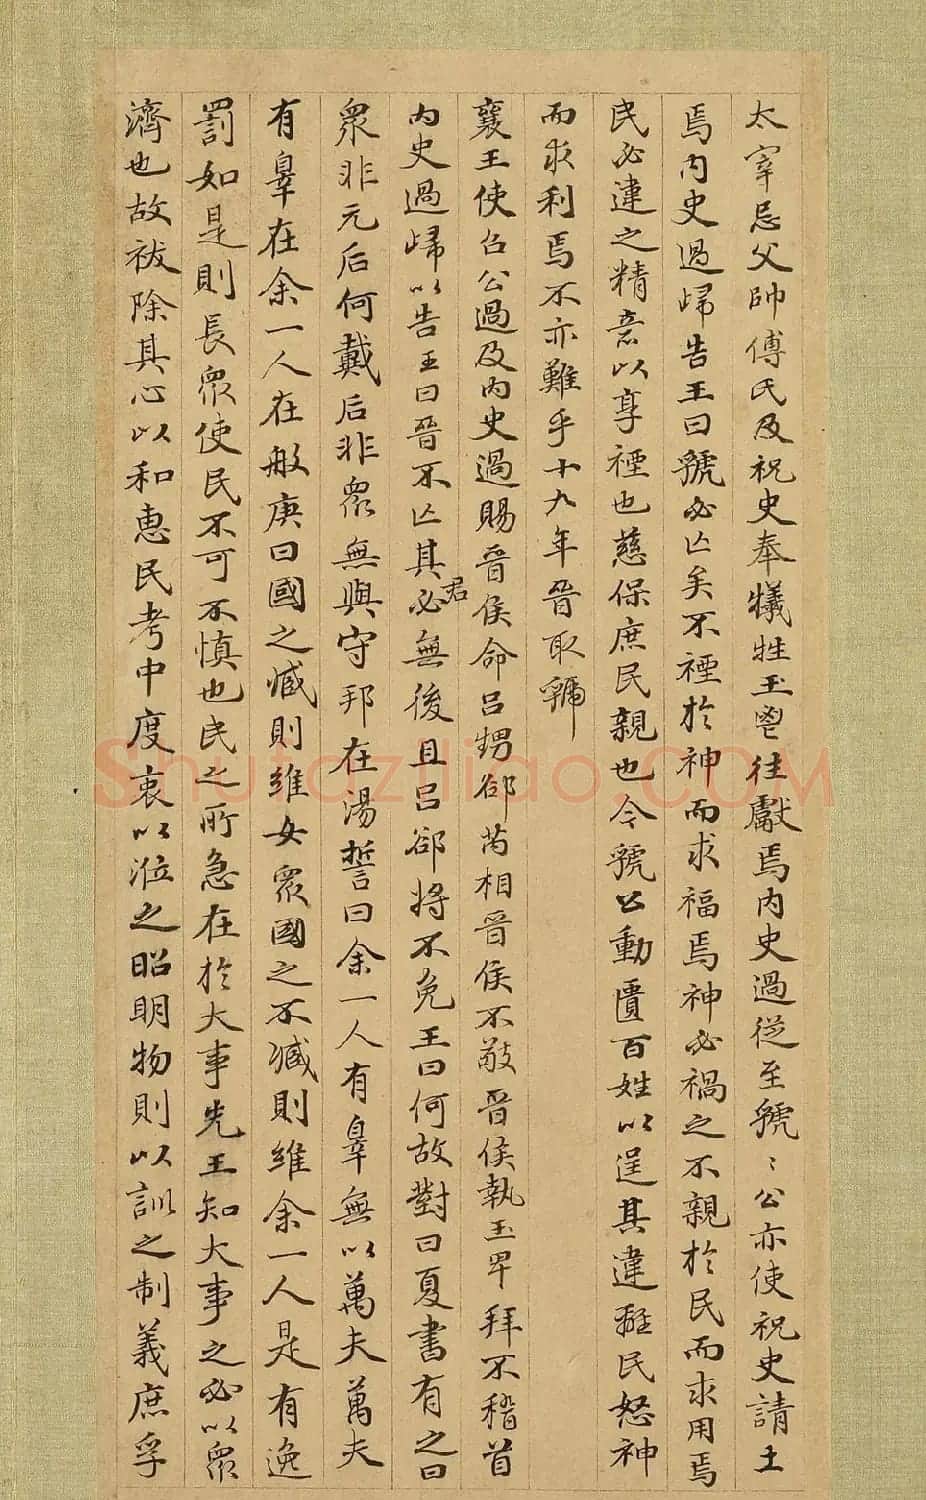 太宰忌父帥傅氏及祝史奉犧牲玉鬯往獻焉内史過從至虢〻公亦使祝史請土
焉内史過歸告王曰虢必亾矣不禋於神而求福焉神必禍之不親於民而求用焉
民必違之精意以享禋也慈保庶民親也今虢公動匱百姓以逞其違離民怒神
而求利焉不亦難乎十九年晉取虢
襄王使召公過及内史過賜晉侯命吕甥郤芮相晉侯不敬晉侯執玉卑拜不稽首
内史過歸以告王曰晉不亾其君必無後且吕郤將不免王曰何故對曰夏書有之曰
衆非元后何戴后非衆無與守邦在湯誓曰余一人有辠無以萬夫萬夫
有辠在余一人在般庚曰國之臧則維女衆國之不臧則維余一人是有逸
罰如是則長衆使民不可不慎也民之所急在於大事先王知大事之必以衆
濟也故祓除其心以和惠民考中度衷以涖之昭明物則以訓之制義庶孚
Shufaziliao.COM